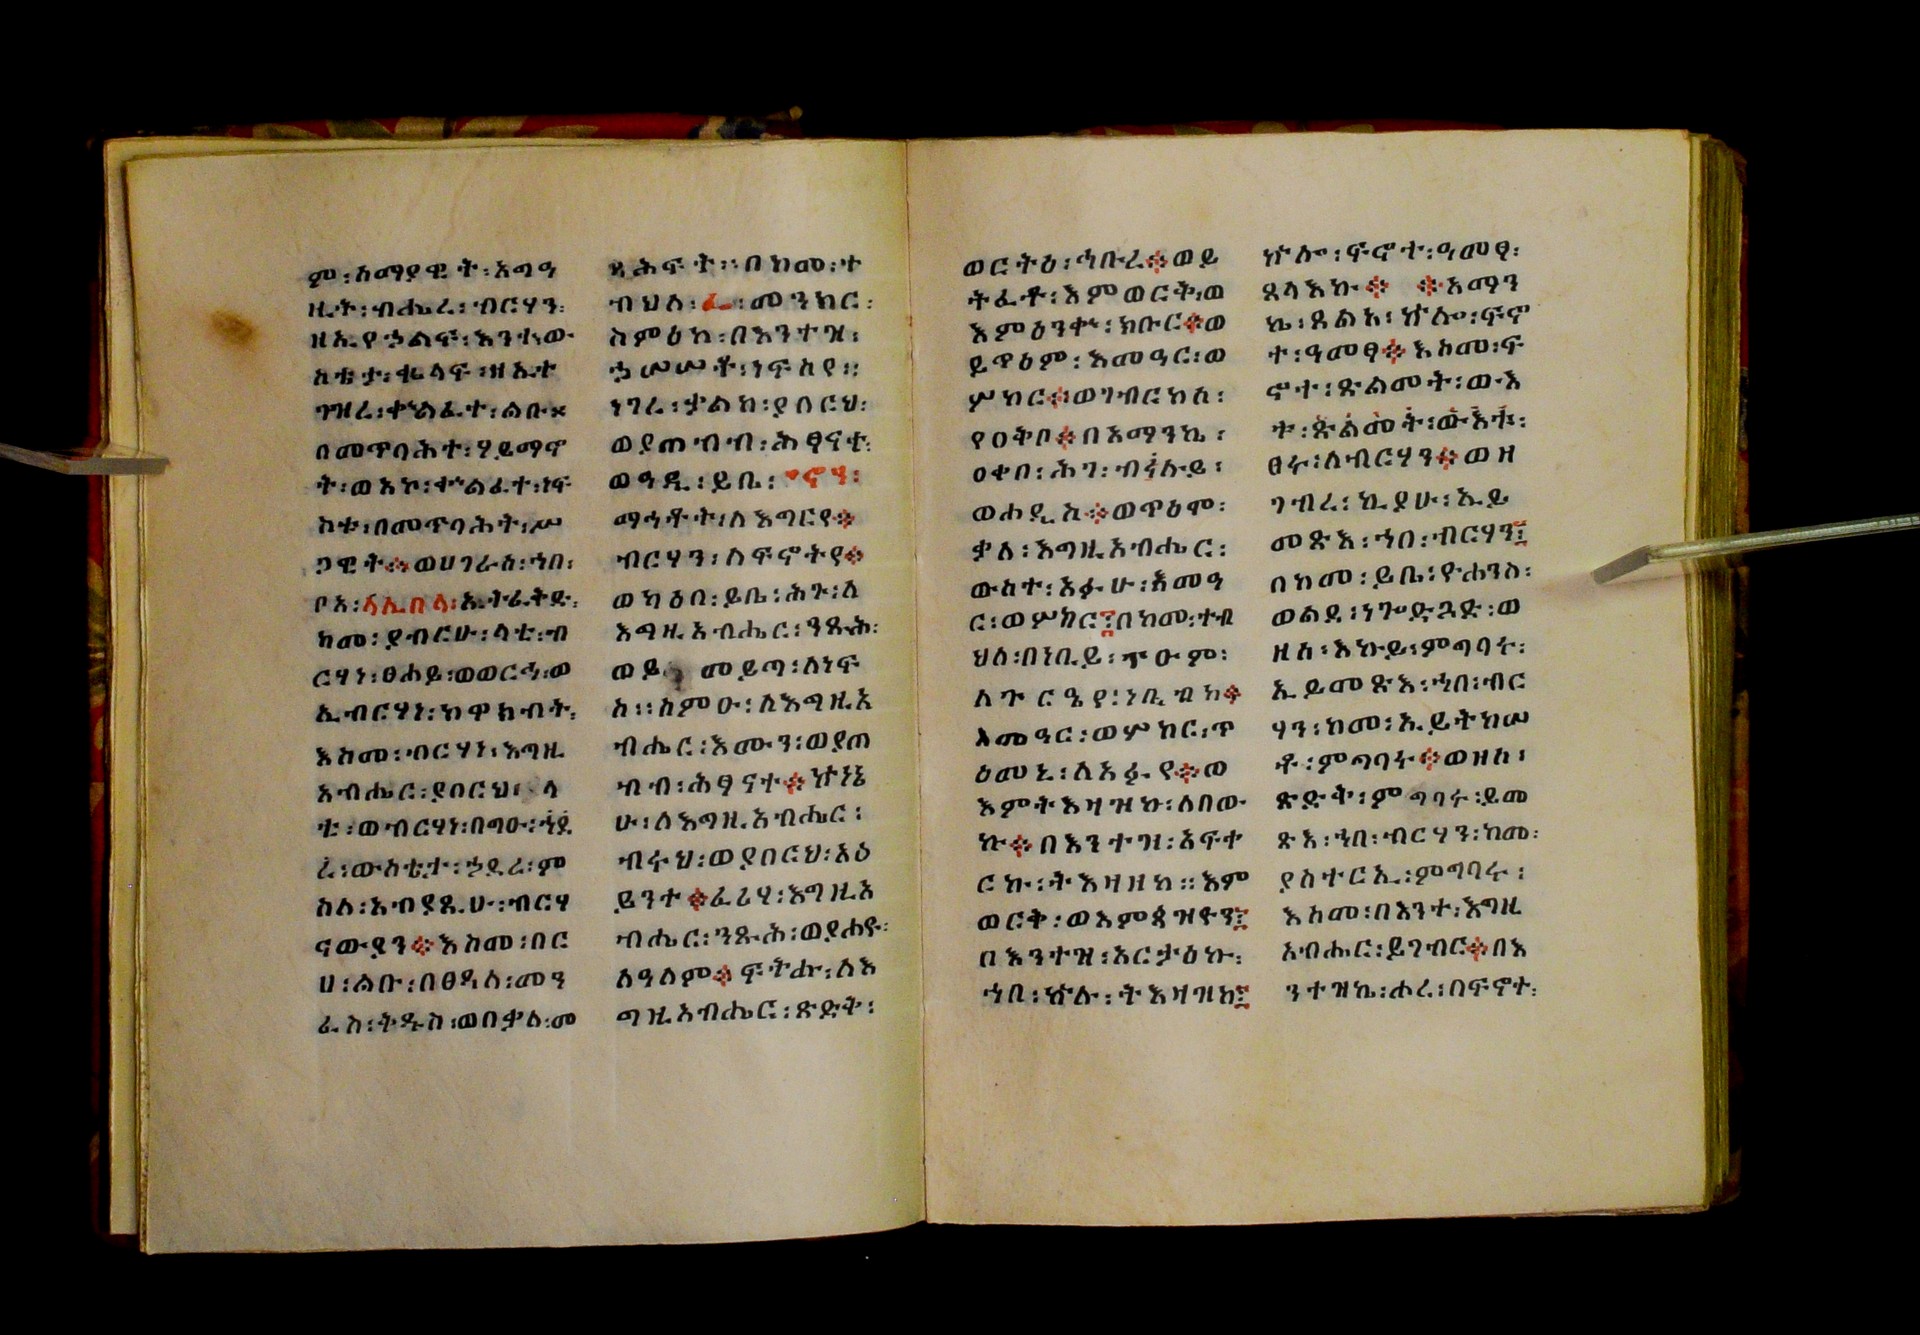 ም፡አማያዊት፡አግዓ
ዚት፡ብሔረ፡ብርሃን፡
ዘኢየኃልፍ፡እንተ፡ው
ዘኢተ
ገዝረ፡ቀኁልፈተ፡ልቡ
በመጥባሕተ፡ሃይማኖ
ት፡ወአኮ፡ቀኁልፈተ፡ነፍ
ስቱ፡በመጥባሕት፡ሥ
ጋዊት፨ወሀገራሰ፡ኀበ፡
ቦአ፡ኢትፈትድ፡
ከመ፡ያብርሁ፡ላቲ፡ብ
ርሃነ፡ፀሐይ፡ወወርኅ፡ወ
ኢብርሃነ፡ከዋክብት፡
እስመ፡ብርሃነ፡እግዚ
አብሔር፡ያበርህ፡ላ
ቲ፡ወብርሃነ፡በግዑ፡ኀደ
ረ፡ውስቴታ፡ኃደረ፡ም
ስለ፡አብያጺሁ፡ብርሃ
ናውያን፨እስመ፡በር
ሀ፡ልቡ፡በፀዳለ፡መን
ፈስ፡ቅዱስ፡ወበቃለ፡መ
ጻሕፍት፡፡በከመ፡ተ
ብህለ፡መንክር፡
ስምዕከ፡በእንተዝ፡
ኃሠሠቶ፡ነፍስየ፡፡
ነገረ፡ቃልከ፡ያበርህ፡
ወያጠብብ፡ሕፃናተ፡
ወዓዲ፡ይቤ፡
ማኅቶት፡ለእግርየ፨
ብርሃን፡ለፍኖትየ፨
ወካዕበ፡ይቤ፡ሕጉ፡ለ
እግዚአብሔር፡ንጹሕ፡
ወይመይጣ፡ለነፍ
ስ፡፡ስምዑ፡ለእግዚአ
ብሔር፡እሙን፡ወያጠ
ብብ፡ሕፃናተ፨ኵነኔ
ሁ፡ለእግዚአብሔር፡
ብሩህ፡ወያበርህ፡አዕ
ይንተ፨ፈሪሃ፡እግዚአ
ብሔር፡ንጹሕ፡ወያሐዩ፡
ለዓለም፨ፍትሑ፡ለእ
ግዚአብሔር፡ጽድቅ፡
ወርትዕ፡ኅቡረ፨ወይ
ትፈቶ፡እምወርቅ፡ወ
እምዕንቍ፡ክቡር፨ወ
ይጥዕም፡እመዓር፡ወ
ሦከር፨ወገብርከሰ፡
የዐቅቦ፨በአማንኬ፡
ዐቀበ፡ሕገ፡ብሉይ፡
ወሐዲስ፨ወጥዕሞ፡
ቃለ፡እግዚአብሔር፡
ውስተ፡አፉሁ፡እመዓ
ር፡ወሦከር፤በከመ፡ተብ
ህለ፡በነቢይ፡ጥዑም፡
ለጕርዔየ፡ነቢብከ፨
እመዓር፡ወሦከር፡ጥ
ዕመኒ፡ለአፉየ፨ወ
እምትእዛዝኩ፡ለበው
ኩ፨በእንተዝ፡አፍተ
ርኩ፡ትእዛዘከ፡፡እም
ወርቅ፡ወእምጳዝዮን፤
በእንተዝ፡አርታዕኩ፡
ኀበ፡ኵሉ፡ትእዛዝከ፤
ኵሎ፡ፍኖተ፡ዓመፃ፡
ጸላእኩ፨ ፨አማን
ኬ፡ጸልአ፡ኵሎ፡ፍኖ
ተ፡ዓመፃ፨እስመ፡ፍ
ኖተ፡ጽልመት፡ውእ
ቱ፡ጽልመት፡ውእቱ፡
ፀሩ፡ለብርሃን፨ወዘ
ገብረ፡ኪያሁ፡ኢይ
መጽእ፡ኀበ፡ብርሃን፤
በከመ፡ይቤ፡ዮሐንስ፡
ወልደ፡ነጐድጓድ፡ወ
ዘሰ፡እኩይ፡ምግባሩ፡
ኢይመጽእ፡ኀበ፡ብር
ሃን፡ከመ፡ኢይትከሠ
ቶ፡ምግባሩ፨ወዘሰ፡
ጽድቅ፡ምግባሩ፡ይመ
ጽእ፡ኀበ፡ብርሃን፡ከመ፡
ያስተርኢ፡ምግባሩ፡
እስመ፡በእንተ፡እግዚ
አብሔር፡ይገብር፨በእ
ንተዝኬ፡ሐረ፡በፍኖተ፡